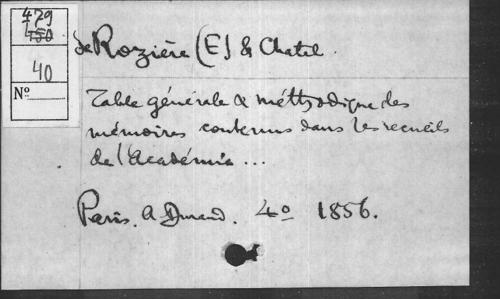 479
450
40
No
de Rozière (E) & Chatel
Table générale & méthodique des
mémoires contenus dans les recueils
de l'Académie ...
Paris. A Durand. 4o 1856.